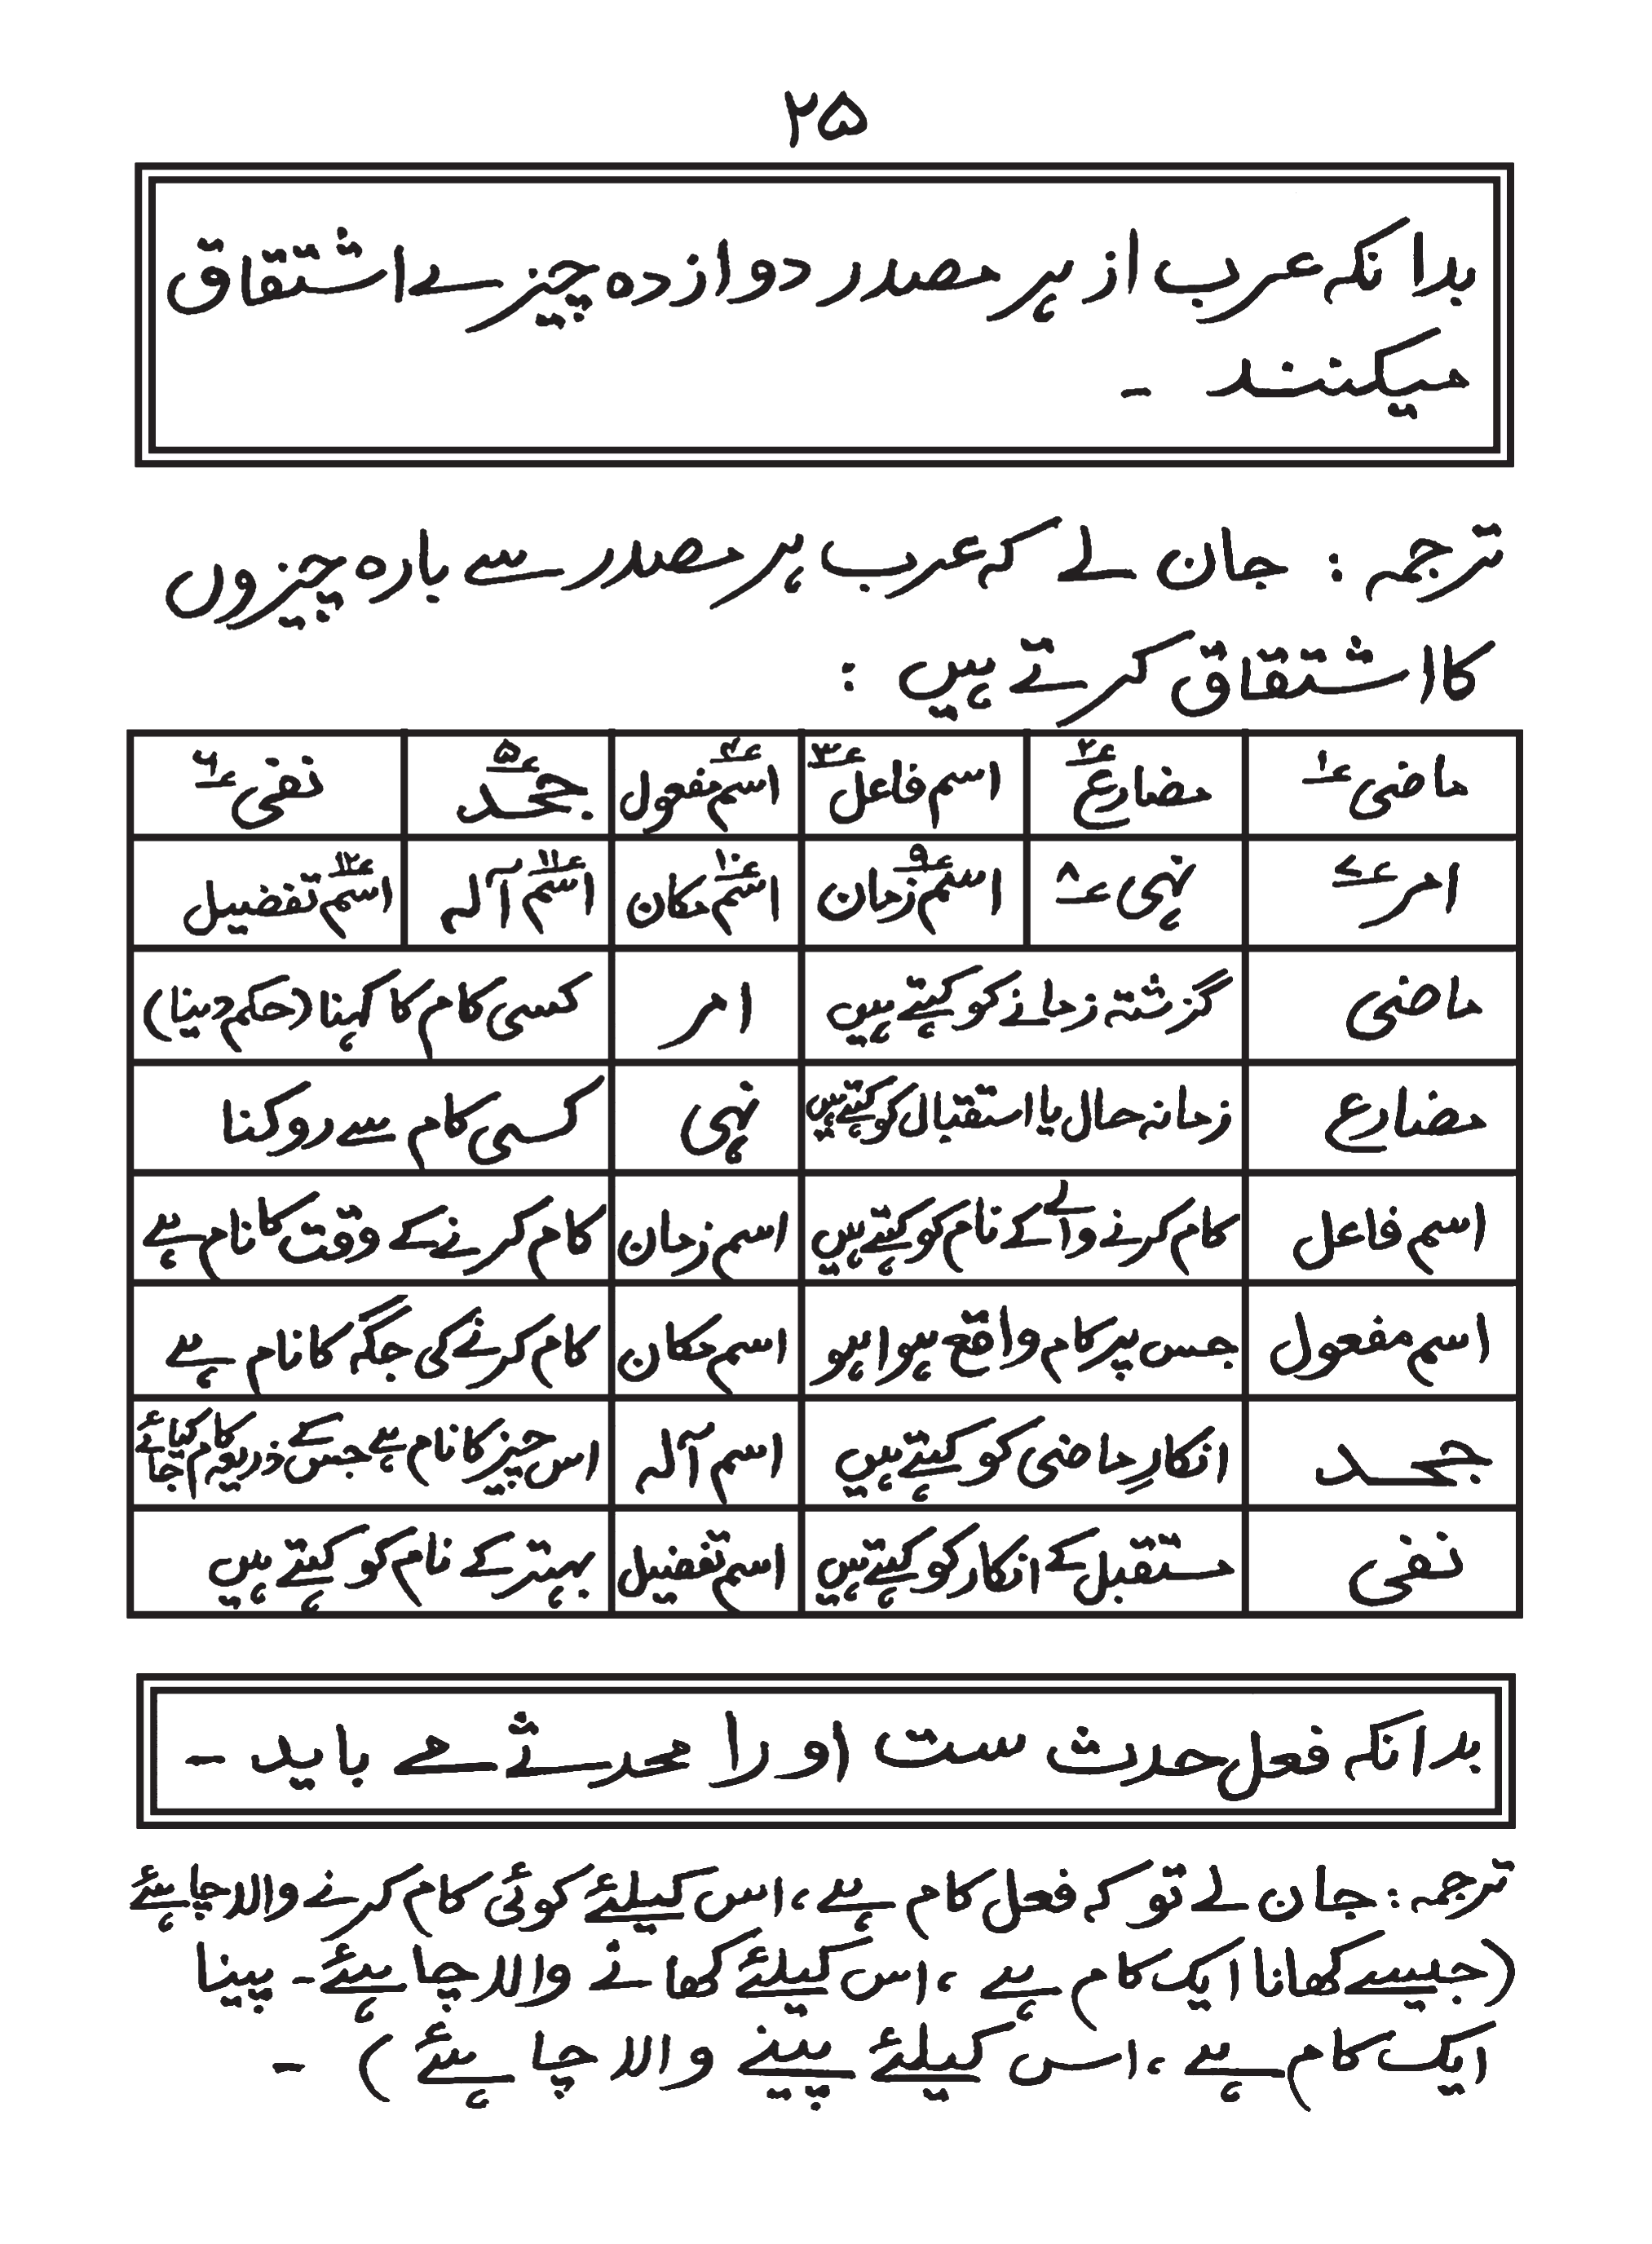 ۲۵
بدانکہ عرب از ہر مصدر دوازدہ چیزے اشتقاق
میکنند ۔
ترجمہ : جان لے کہ عرب ہر مصدر سے بارہ چیزوں
کا اشتقاق کرتے ہیں :
ماضی ؏۱ مضارع ؏۲ اسم فاعل ؏۳ اسم مفعول ؏۴ جحد ؏۵ نفی ؏۶
امر ؏۷ نہی ؏۸ اسم زمان ؏۹ اسم مکان ؏۱۰ اسم آلہ ؏۱۱ اسم تفضیل ؏۱۲
ماضی گزشتہ زمانے کو کہتے ہیں امر کسی کام کا کہنا (حکم دینا)
مضارع زمانہ حال یا استقبال کو کہتے ہیں نہی کسی کام سے روکنا
اسم فاعل کام کرنے والے کے نام کو کہتے ہیں اسم زمان کام کرنے کے وقت کا نام ہے
اسم مفعول جس پر کام واقع ہوا ہو اسم مکان کام کرنے کی جگہ کا نام ہے
جحد انکارِ ماضی کو کہتے ہیں اسم آلہ اس چیز کا نام ہے جس کے ذریعہ کام کیا جائے
نفی مستقبل کے انکار کو کہتے ہیں اسم تفضیل بہتر کے نام کو کہتے ہیں
بدانکہ فعل حدث ست او را محدثے مے باید ۔
ترجمہ : جان لے تو کہ فعل کام ہے ، اس کیلئے کوئی کام کرنے والا چاہئے
(جیسے کھانا ایک کام ہے ، اس کیلئے کھانے والا چاہئے ۔ پینا
ایک کام ہے ، اس کیلئے پینے والا چاہئے ) ۔